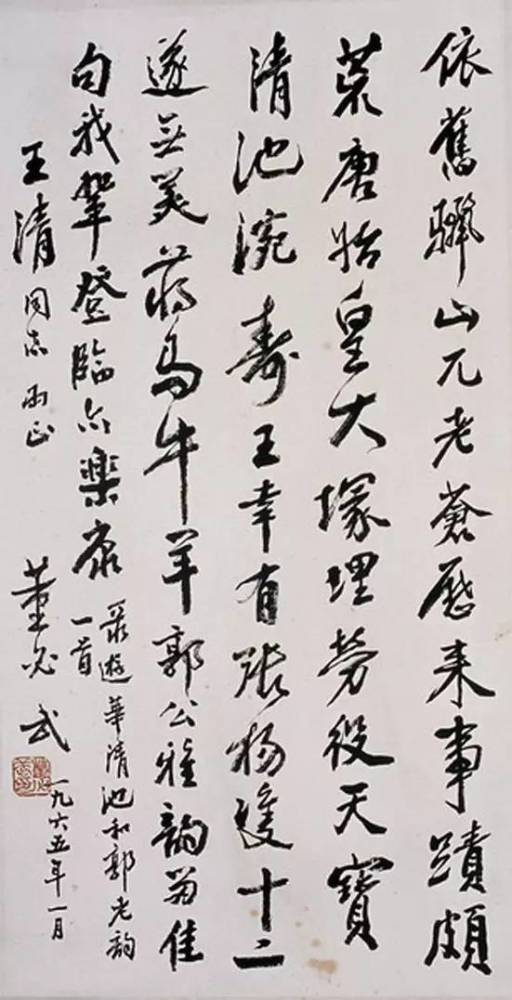 依舊驪山兀老蒼歷来事蹟頗
荒唐始皇大塚埋勞役天寶
清池涴壽王幸有張楊雙十二
遂無美蒋馬牛羊郭公雅韵留佳
句我輩登臨亦樂康
遊華清池和郭老韵
一首
王清同志正
董必武
一九六五年一月